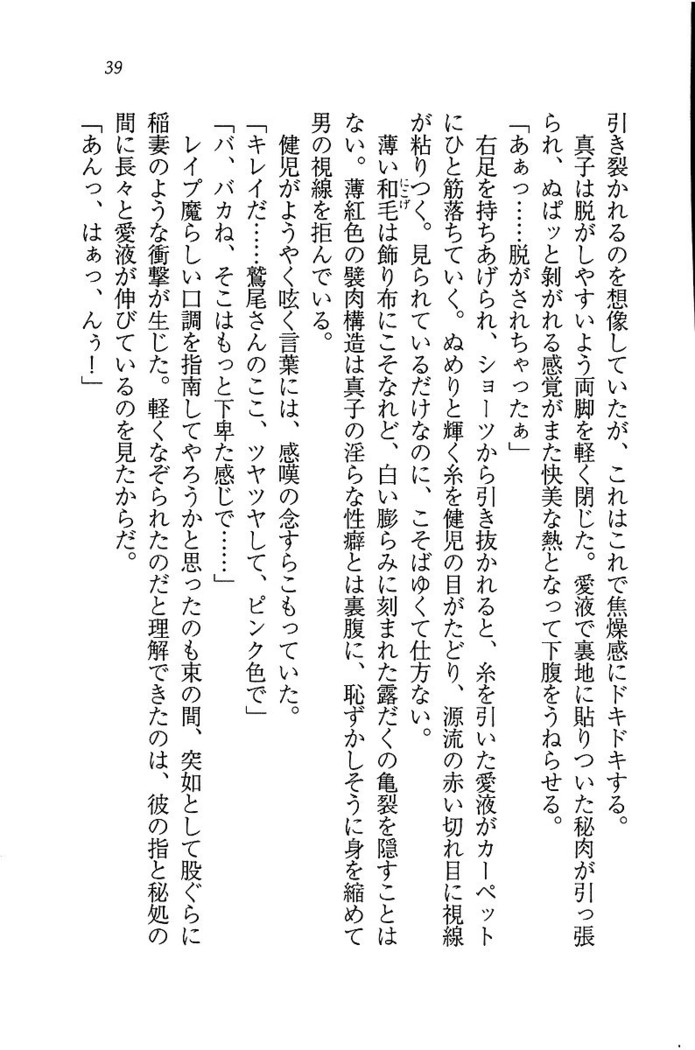 39
引き裂かれるのを想像していたが、これはこれで焦燥感にドキドキする。
真子は脱がしやすいよう両脚を軽く閉じた。愛液で裏地に貼りついた秘肉が引っ張
られ、ぬぱッと剝がれる感覚がまた快美な熱となって下腹をうねらせる。
「あぁっ……脱がされちゃったぁ」
右足を持ちあげられ、ショーツから引き抜かれると、糸を引いた愛液がカーペット
にひと筋落ちていく。ぬめりと輝く糸を健児の目がたどり、源流の赤い切れ目に視線
が粘りつく。見られているだけなのに、こそばゆくて仕方ない。
薄い和毛は飾り布にこそなれど、白い膨らみに刻まれた露だくの亀裂を隠すことは
にこげ
ない。薄紅色の襞肉構造は真子の淫らな性癖とは裏腹に、恥ずかしそうに身を縮めて
男の視線を拒んでいる。
健児がようやく呟く言葉には、感嘆の念すらこもっていた。
「キレイだ……鷲尾さんのここ、ツヤツヤして、ピンク色で」
「バ、バカね、そこはもっと下卑た感じで……」
レイプ魔らしい口調を指南してやろうかと思ったのも束の間、突如として股ぐらに
稲妻のような衝撃が生じた。軽くなぞられたのだと理解できたのは、彼の指と秘処の
間に長々と愛液が伸びているのを見たからだ。
「あんっ、はぁっ、んぅ！」